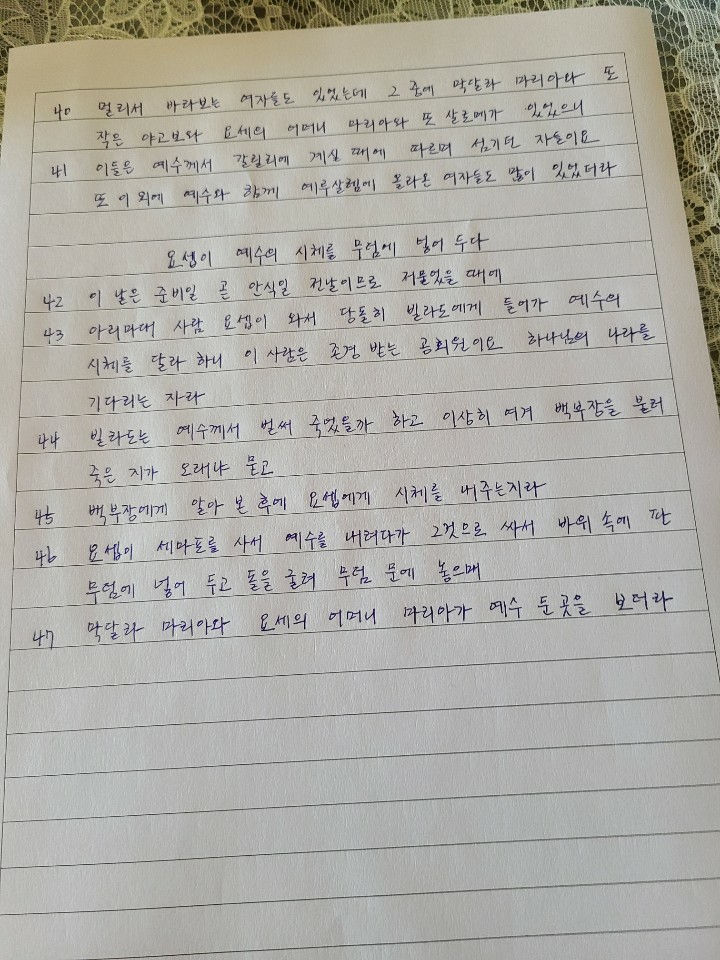 40 멀리서 바라보는 여자들도 있었는데 그 중에 막달라 마리아와 또
작은 야고보와 요세의 어머니 마리아와 또 살로메가 있었으니
41 이들은 예수께서 갈릴리에 계실 때에 따르며 섬기던 자들이요
또 이 외에 예수와 함께 예루살렘에 올라온 여자들도 많이 있었더라
요셉이 예수의 시체를 무덤에 넣어 두다
42 이 날은 준비일 곧 안식일 전날이므로 저물었을 때에
43 아리마대 사람 요셉이 와서 당돌히 빌라도에게 들어가 예수의
시체를 달라 하니 이 사람은 존경 받는 공회원이요 하나님의 나라를
기다리는 자라
44 빌라도는 예수께서 벌써 죽었을까 하고 이상히 여겨 백부장을 불러
죽은 지가 오래냐 묻고
45 백부장에게 알아 본 후에 요셉에게 시체를 내주는지라
46 요셉이 세마포를 사서 예수를 내려다가 그것으로 싸서 바위 속에 판
무덤에 넣어 두고 돌을 굴려 무덤 문에 놓으매
47 막달라 마리아와 요세의 어머니 마리아가 예수 둔 곳을 보더라